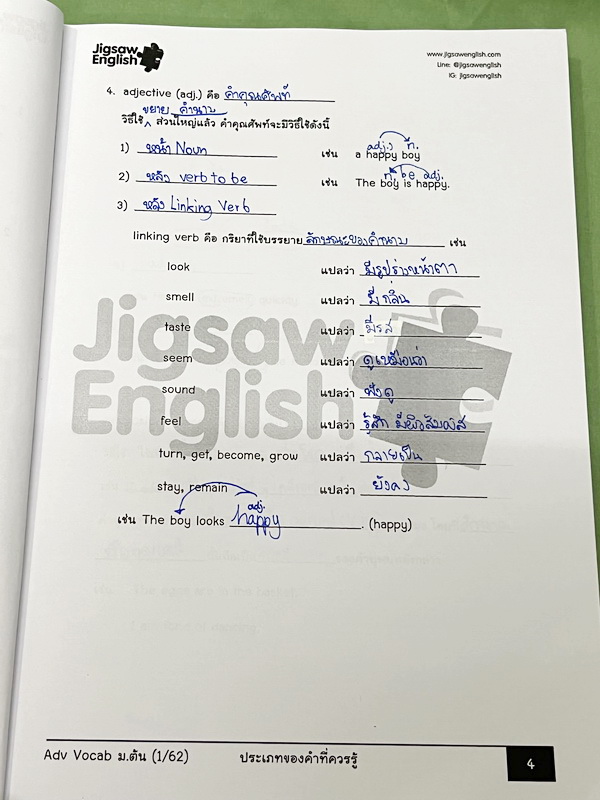 Jigsaw English
www.jigsawenglish.com
Line: @jigsawenglish
IG: jigsawenglish
4. adjective (adj.) คือ คำคุณศัพท์
ขยาย คำนาม
วิธีใช้ ^ ส่วนใหญ่แล้ว คำคุณศัพท์จะมีวิธีใช้ดังนี้
adj. n.
1) หน้า Noun เช่น a happy boy
n. be adj.
2) หลัง verb to be เช่น The boy is happy.
3) หลัง Linking Verb
linking verb คือ กริยาที่ใช้บรรยาย ลักษณะของคำนาม เช่น
look แปลว่า มีรูปร่างหน้าตา
smell แปลว่า มีกลิ่น
taste แปลว่า มีรส
seem แปลว่า ดูเหมือนว่า
sound แปลว่า ฟังดู
feel แปลว่า รู้สึก มีผิวสัมผัส
turn, get, become, grow แปลว่า กลายเป็น
stay, remain แปลว่า ยังคง
adj.
เช่น The boy looks happy. (happy)
Jigsaw English
Adv Vocab ม.ต้น (1/62) ประเภทของคำที่ควรรู้ 4